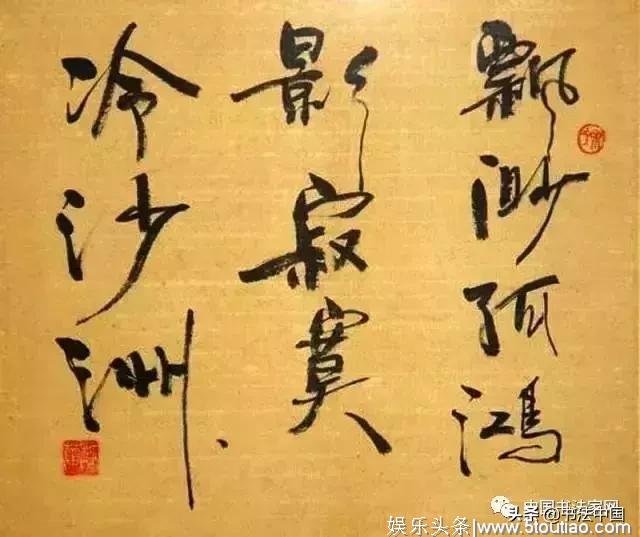 飘渺孤鸿
影寂寞
冷沙洲
中国书法家网
头条@书法中国
娱乐头条/www.5toutiao.com